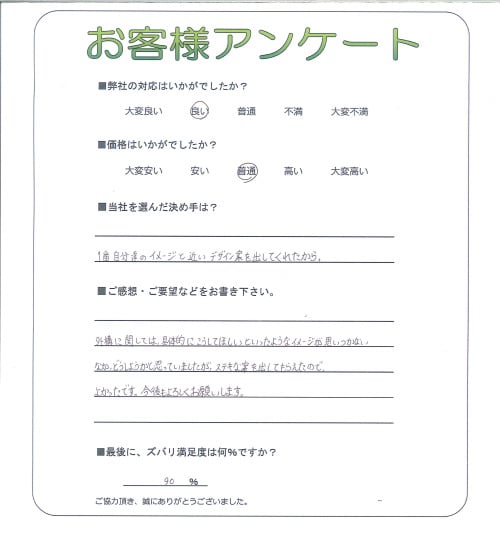 お客様アンケート
■弊社の対応はいかがでしたか？
大変良い 良い 普通 不満 大変不満
■価格はいかがでしたか？
大変安い 安い 普通 高い 大変高い
■当社を選んだ決め手は？
1番自分達のイメージと近いデザイン案を出してくれたから。
■ご感想・ご要望などをお書き下さい。
外構に関しては、具体的にこうしてほしいといったようなイメージが思いつかない
なか、どうしようかと思っていましたが、ステキな案を出してもらえたので、
よかったです。今後もよろしくお願いします。
■最後に、ズバリ満足度は何％ですか？
90 ％
ご協力頂き、誠にありがとうございました。